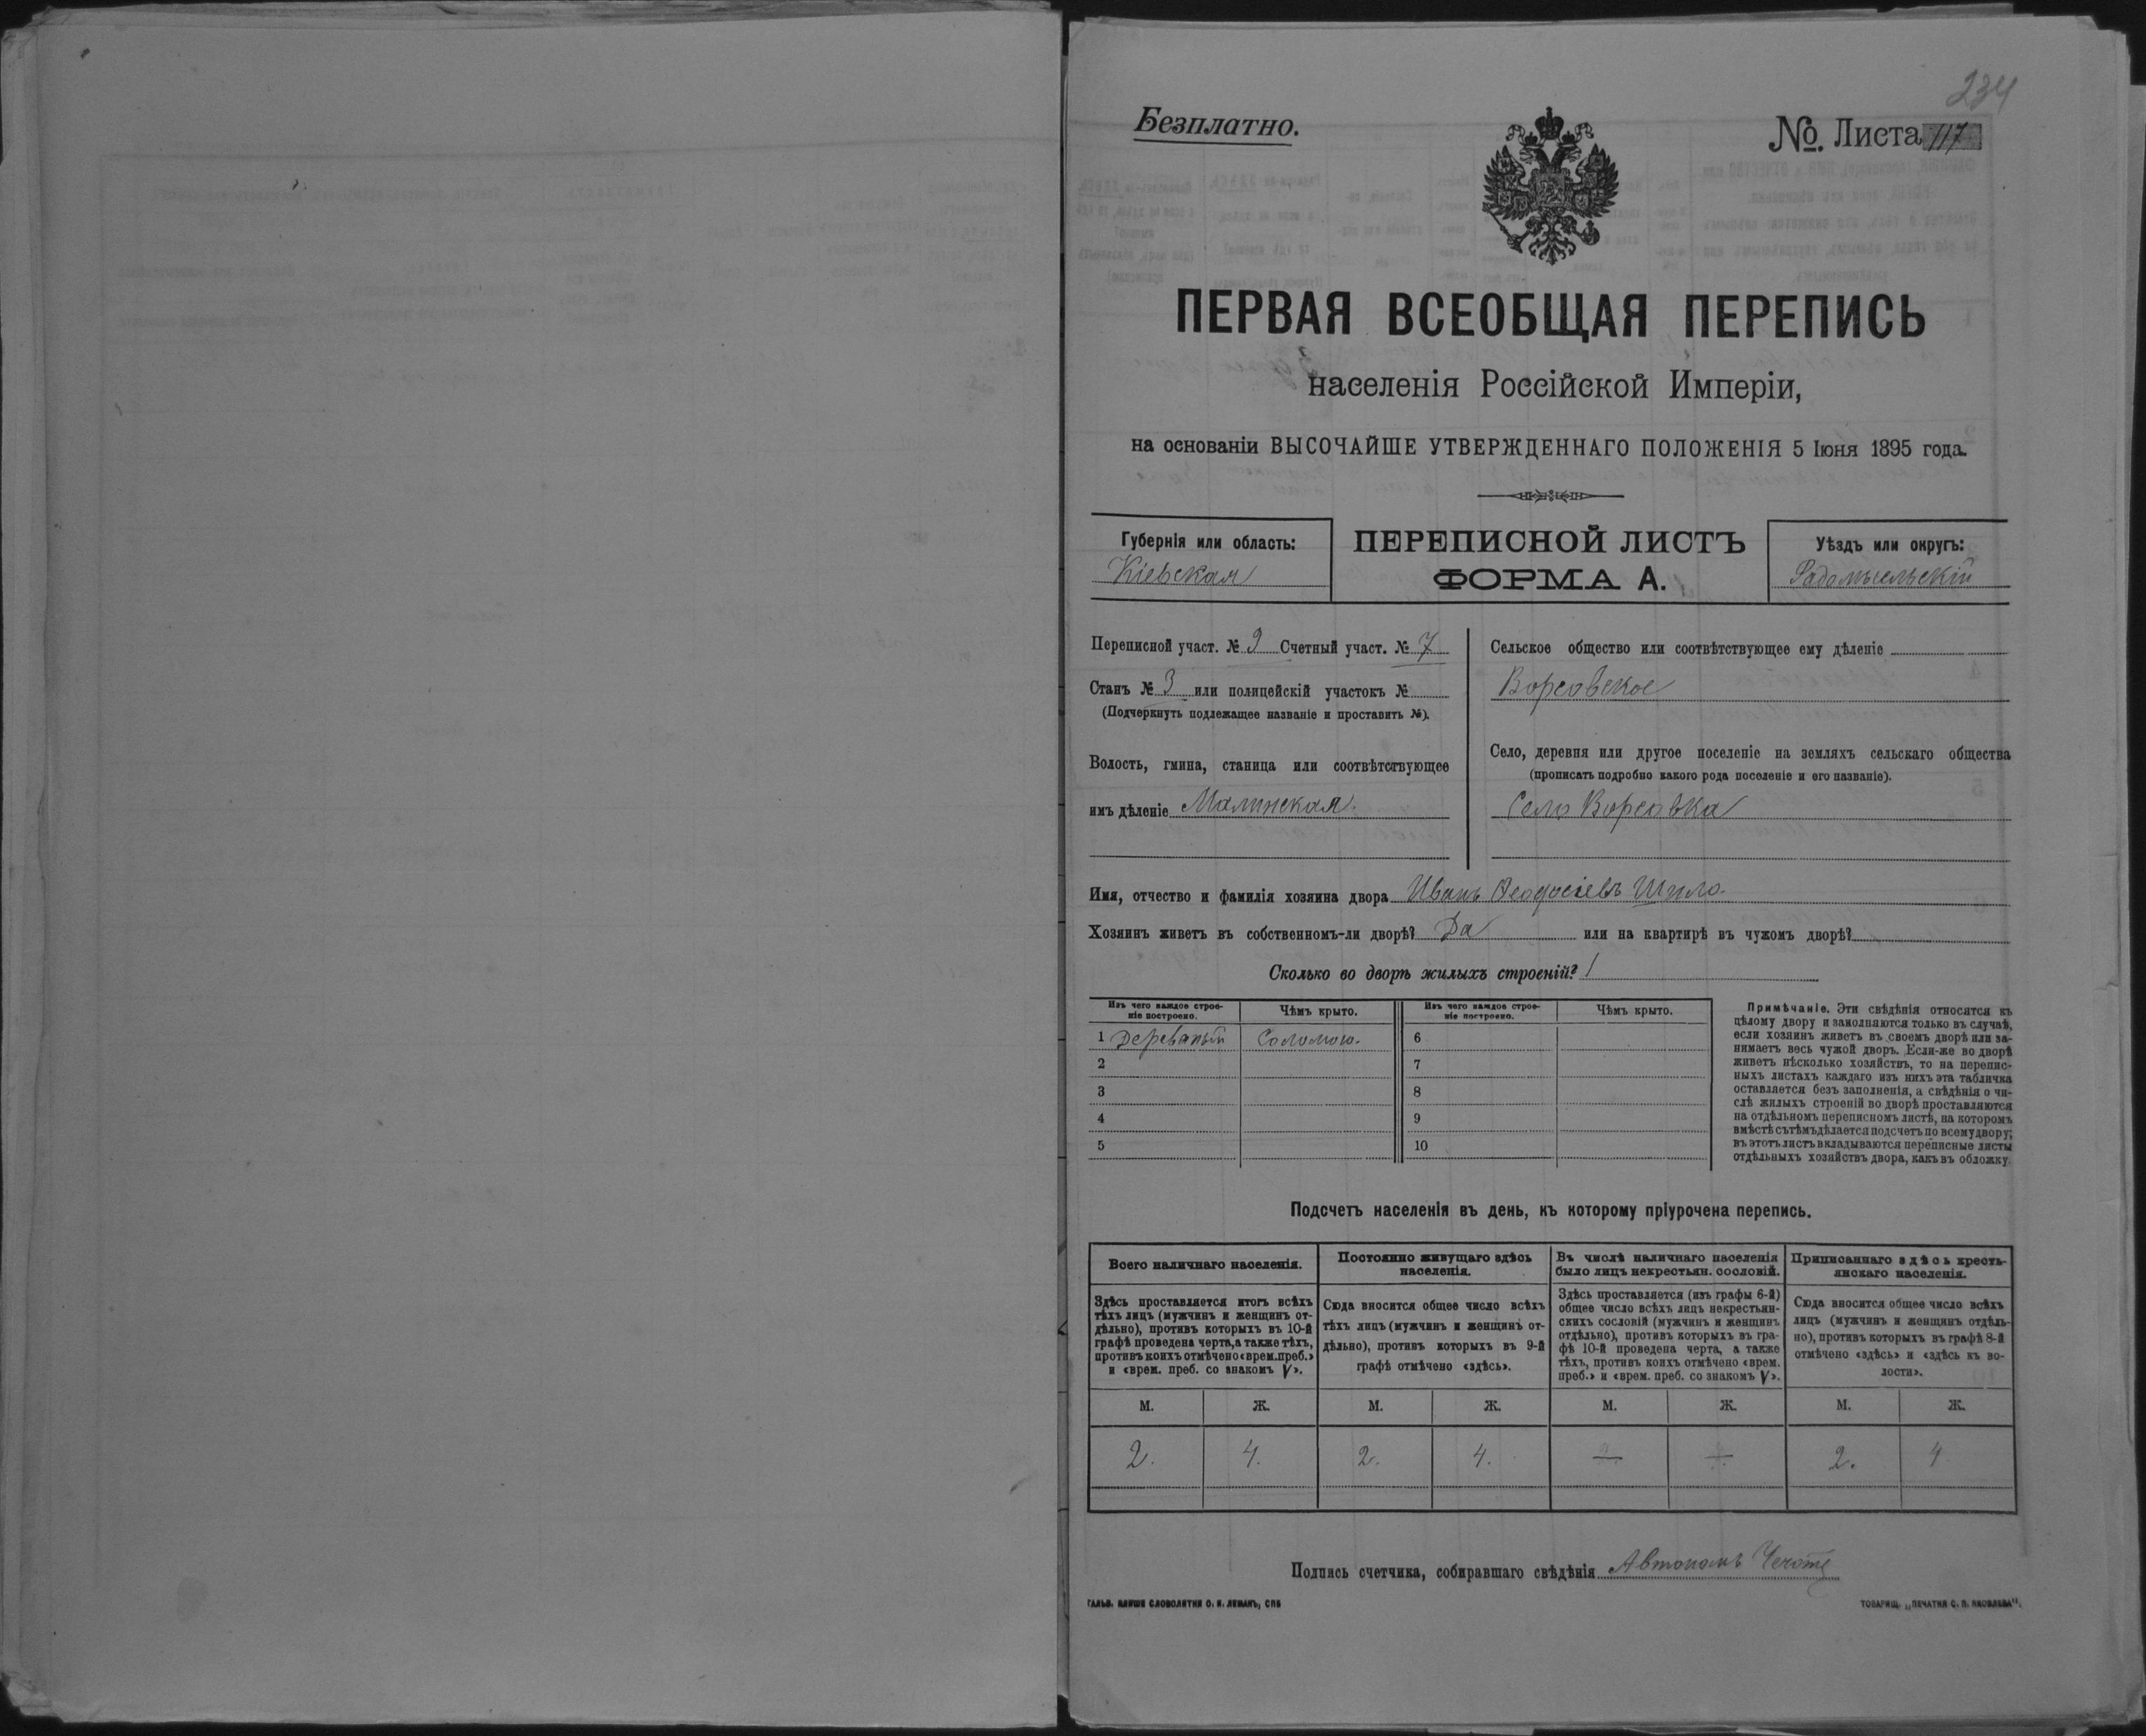 234
Безплатно.
№. Листа 117
ПЕРВАЯ ВСЕОБЩАЯ ПЕРЕПИСЬ
населенія Россійской Имперіи,
на основаніи ВЫСОЧАЙШЕ УТВЕРЖДЕННАГО ПОЛОЖЕНІЯ 5 Іюня 1895 года.
Губернія или область:
Кіевская
ПЕРЕПИСНОЙ ЛИСТЪ
ФОРМА А.
Уѣздъ или округъ:
Радомысльскій
Переписной участ. № 9 Счетный участ. № 7
Станъ № 3 или полицейскій участокъ №
(Подчеркнуть подлежащее названіе и проставить №).
Волость, гмина, станица или соотвѣтствующее
имъ дѣленіе Малинская.
Сельское общество или соотвѣтствующее ему дѣленіе
Ворсовское
Село, деревня или другое поселеніе на земляхъ сельскаго общества
(прописать подробно какого рода поселеніе и его названіе).
Село Ворсовка
Имя, отчество и фамилія хозяина двора Иванъ Ѳеодосіевъ Шило.
Хозяинъ живетъ въ собственномъ-ли дворѣ? Да или на квартирѣ въ чужомъ дворѣ?
Сколько во дворѣ жилыхъ строеній? 1
Изъ чего каждое строе-
ніе построено.
Чѣмъ крыто.
Изъ чего каждое строе-
ніе построено.
Чѣмъ крыто.
1 Деревяный Соломою. 6
2 7
3 8
4 9
5 10
Примѣчаніе. Эти свѣдѣнія относятся къ
цѣлому двору и заполняются только въ случаѣ,
если хозяинъ живетъ въ своемъ дворѣ или за-
нимаетъ весь чужой дворъ. Если-же во дворѣ
живетъ нѣсколько хозяйствъ, то на перепис-
ныхъ листахъ каждаго изъ нихъ эта табличка
оставляется безъ заполненія, а свѣдѣнія о чи-
слѣ жилыхъ строеній во дворѣ проставляются
на отдѣльномъ переписномъ листѣ, на которомъ
вмѣстѣ съ тѣмъ дѣлается подсчетъ по всему двору;
въ этотъ листъ вкладываются переписные листы
отдѣльныхъ хозяйствъ двора, какъ въ обложку.
Подсчетъ населенія въ день, къ которому пріурочена перепись.
Всего наличнаго населенія.
Здѣсь проставляется итогъ всѣхъ
тѣхъ лицъ (мужчинъ и женщинъ от-
дѣльно), противъ которыхъ въ 10-й
графѣ проведена черта, а также тѣхъ,
противъ коихъ отмѣчено «врем. преб.»
и «врем. преб. со знакомъ V».
Постоянно живущаго здѣсь
населенія.
Сюда вносится общее число всѣхъ
тѣхъ лицъ (мужчинъ и женщинъ от-
дѣльно), противъ которыхъ въ 9-й
графѣ отмѣчено «здѣсь».
Въ числѣ наличнаго населенія
было лицъ некрестьян. сословій.
Здѣсь проставляется (изъ графы 6-й)
общее число всѣхъ лицъ некрестьян-
скихъ сословій (мужчинъ и женщинъ
отдѣльно), противъ которыхъ въ гра-
фѣ 10-й проведена черта, а также
тѣхъ, противъ коихъ отмѣчено «врем.
преб.» и «врем. преб. со знакомъ V».
Приписаннаго здѣсь кресть-
янскаго населенія.
Сюда вносится общее число всѣхъ
лицъ (мужчинъ и женщинъ отдѣль-
но), противъ которыхъ въ графѣ 8-й
отмѣчено «здѣсь» и «здѣсь къ во-
лости».
М. Ж. М. Ж. М. Ж. М. Ж.
2. 4. 2. 4. — — 2. 4
Подпись счетчика, собиравшаго свѣдѣнія Автономъ
ГАЛЬВ. КЛИШЕ СЛОВОЛИТНИ О. И. ЛЕМАНЪ, СПБ
ТОВАРИЩ. „ПЕЧАТНЯ С. П. ЯКОВЛЕВА“.